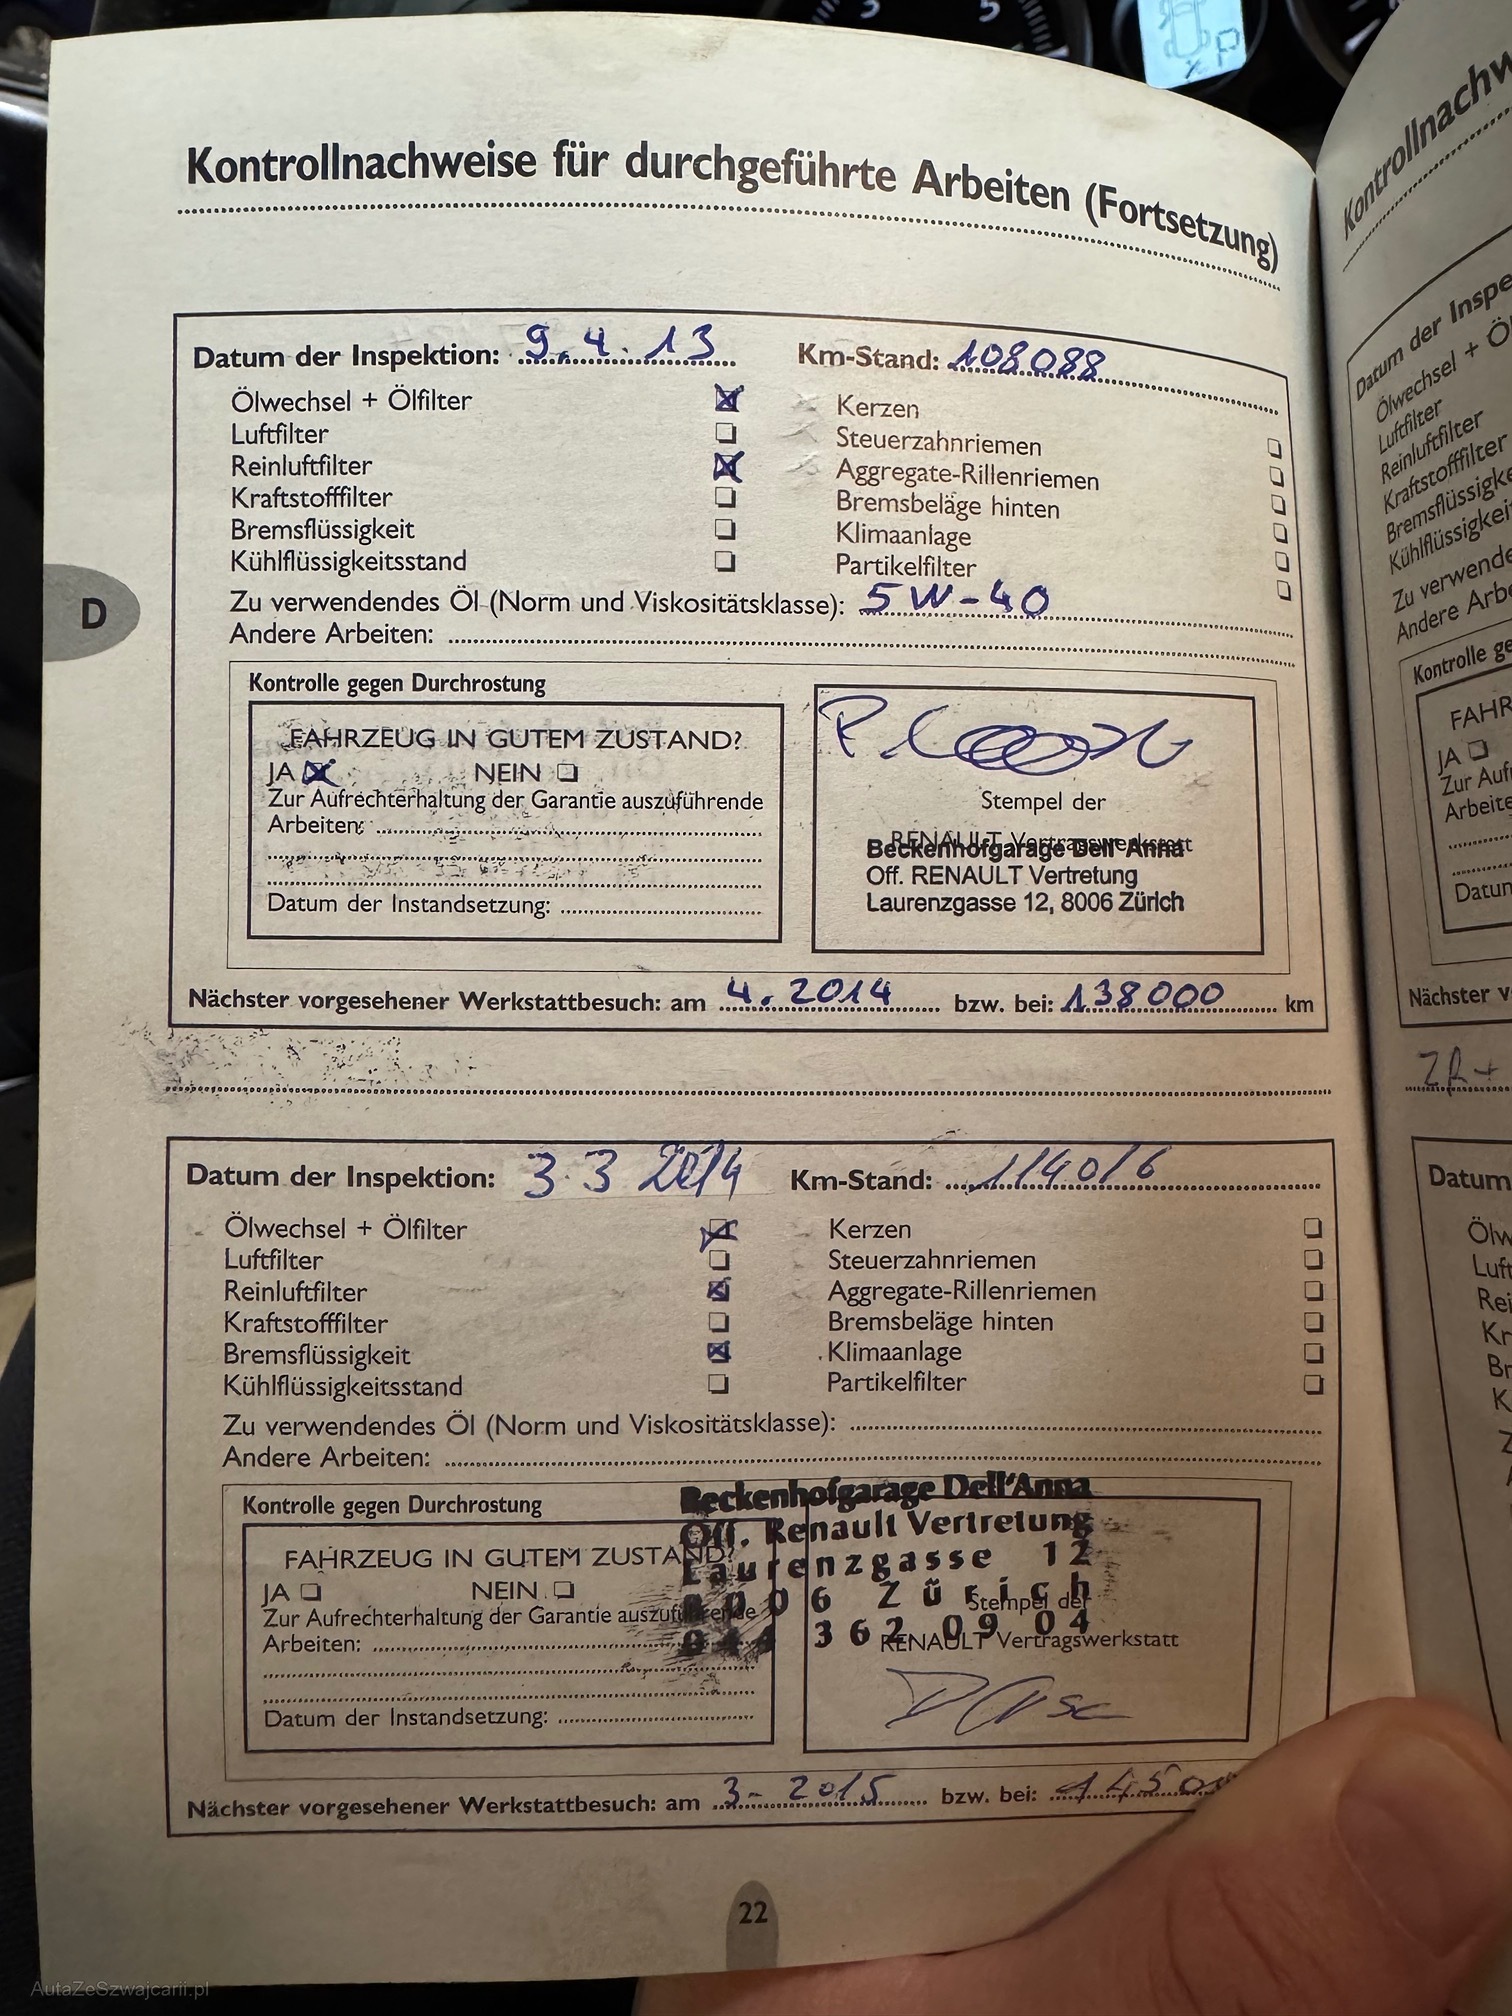 3 5
P
Kontrollnachweise für durchgeführte Arbeiten (Fortsetzung)
Datum der Inspektion: 9.4.13 Km-Stand: 108088
Ölwechsel + Ölfilter Kerzen
Luftfilter Steuerzahnriemen
Reinluftfilter Aggregate-Rillenriemen
Kraftstofffilter Bremsbeläge hinten
Bremsflüssigkeit Klimaanlage
Kühlflüssigkeitsstand Partikelfilter
Zu verwendendes Öl (Norm und Viskositätsklasse): 5W-40
Andere Arbeiten:
D
Kontrolle gegen Durchrostung
FAHRZEUG IN GUTEM ZUSTAND?
JA NEIN
Zur Aufrechterhaltung der Garantie auszuführende
Arbeiten:
Datum der Instandsetzung:
Stempel der
RENAULT Vertragswerkstatt
Beckenhofgarage Dell'Anna
Off. RENAULT Vertretung
Laurenzgasse 12, 8006 Zürich
Nächster vorgesehener Werkstattbesuch: am 4.2014 bzw. bei: 138000 km
Datum der Inspektion: 3.3 2014 Km-Stand: 114016
Ölwechsel + Ölfilter Kerzen
Luftfilter Steuerzahnriemen
Reinluftfilter Aggregate-Rillenriemen
Kraftstofffilter Bremsbeläge hinten
Bremsflüssigkeit Klimaanlage
Kühlflüssigkeitsstand Partikelfilter
Zu verwendendes Öl (Norm und Viskositätsklasse):
Andere Arbeiten:
Kontrolle gegen Durchrostung
FAHRZEUG IN GUTEM ZUSTAND?
JA NEIN
Zur Aufrechterhaltung der Garantie auszuführende
Arbeiten:
Datum der Instandsetzung:
Beckenhofgarage Dell'Anna
Off. Renault Vertretung
Laurenzgasse 12
8006 Zürich
044 362 09 04
Stempel der
RENAULT Vertragswerkstatt
Nächster vorgesehener Werkstattbesuch: am 3-2015 bzw. bei:
22
Kontrollnachw
Datum der Inspe
Ölwechsel + Ö
Luftfilter
Reinluftfilter
Kraftstofffilter
Bremsflüssigke
Kühlflüssigkei
Zu verwende
Andere Arbe
Kontrolle ge
FAHR
JA
Zur Auf
Arbeite
Datun
Nächster v
ZR+
Datum
Ölw
Luft
Rei
Kr
Br
K
Z
AutaZeSzwajcarii.pl